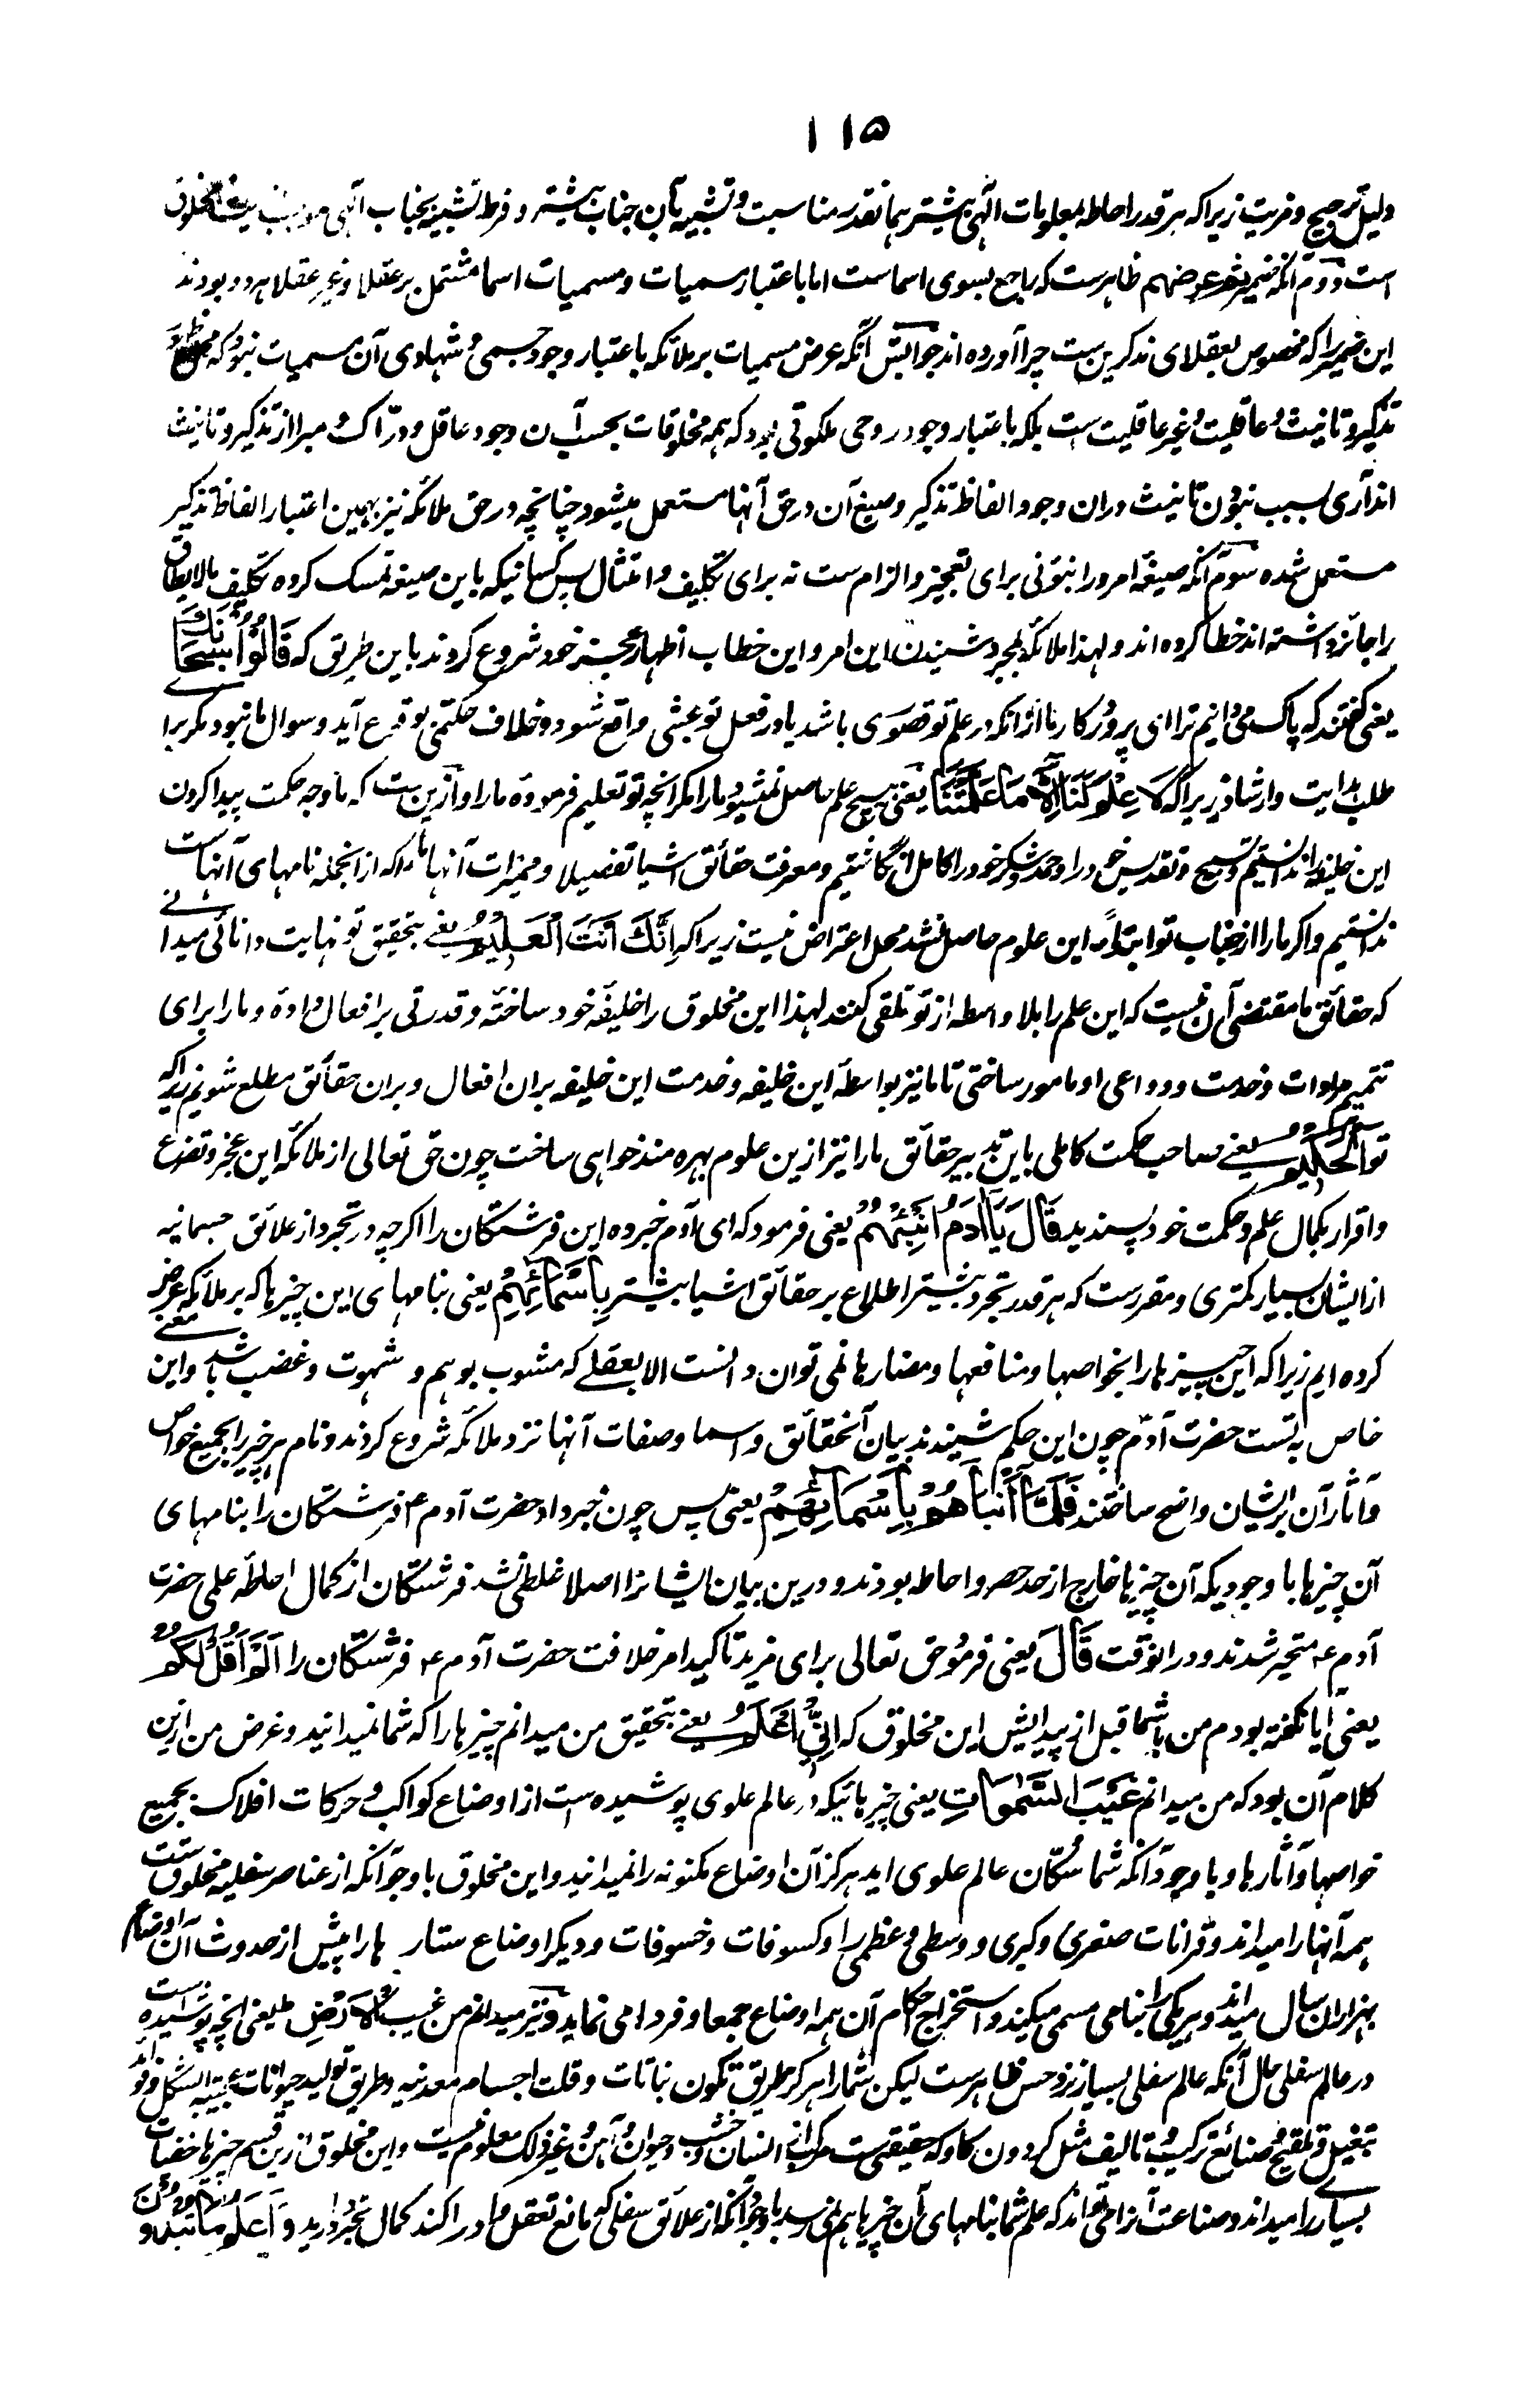 ۱۱۵
دلیل ترجیح و مزیت زیراکه هر قدر احاطه بمعلومات الٓهی بیشتر همانقدر مناسبت و تشبیه بآن جناب بیشتر و فرط تشبیه بجناب الٓهی موجب
است دوم آنکه ضمیر ثم عرضهم ظاهرست که راجع بسوی اسماست اما باعتبار مسمیات و مسمیات اسما مشتمل بر عقلا و غیر عقلا هر دو بودند
این ضمیر را که مخصوص بعقلای مذکرین ست چرا آورده اند جوابش آنکه عرض مسمیات بر ملائکه باعتبار وجود جسمی و شهادی آن مسمیات نبود که
تذکیر و تانیث و عاقلیت و غیر عاقلیت است بلکه باعتبار وجود روحی ملکوتی بود که همه مخلوقات بحسب آن وجود عاقل و درّاک و مبرا از تذکیر و تانیث
اند آری بسبب نبودن تانیث دران وجود الفاظ تذکیر و صیغ آن در حق آنها مستعمل میشود چنانچه در حق ملائکه نیز بهمین اعتبار الفاظ تذکیر
مستعمل شده سوم آنکه صیغه امر در انبئونی برای تعجیز و الزام ست نه برای تکلیف و امتثال پس کسانیکه باین صیغه تمسک کرده تکلیف مالایطاق
را جائز داشته اند خطا کرده اند و لهذا ملائکه بمجرد شنیدن این امر و این خطاب اظهار عجز خود شروع کردند باین طریق که قَالُوْا سُبْحَانَكَ
یعنی گفتند که پاک میدانیم ترا ای پروردگار ما ازانکه در علم تو قصوری باشد یا در فعل تو عبثی واقع شود و خلاف حکمتی بوقوع آید و سوال ما نبود مگر برای
طلب هدایت و ارشاد زیراکه لَا عِلْمَ لَنَا اِلَّا مَا عَلَّمْتَنَا یعنی هیچ علم حاصل نمیشود ما را مگر آنچه تو تعلیم فرموده ما را و ازین ست که ما وجه حکمت پیدا کردن
این خلیفه ندانستیم و تسبیح و تقدیس خود را و حمد و شکر خود را کامل انگاشتیم و معرفت حقائق اشیا تفصیلا و ممیزات آنها را که ازانجمله نامهای آنهاست
ندانستیم و اگر ما را از جناب تو ابتداءً این علوم حاصل نشد محل اعتراض نیست زیراکه اِنَّكَ اَنْتَ الْعَلِيْمُ یعنی بتحقیق تو نهایت دانائی میدانی
که حقائق ما مقتضی آن نیست که این علم را بلا واسطه از تو تلقی کنند لهذا این مخلوق را خلیفه خود ساخته و قدرتی بر افعال داده و ما را برای
تتمیم مرادات و خدمت و دواعی او مامور ساختی تا ما نیز بواسطه این خلیفه و خدمت این خلیفه بران افعال و بران حقائق مطلع شویم زیراکه
تو الْحَكِيْمُ یعنی صاحب حکمت کاملی باین تدبیر حقائق ما را نیز ازین علوم بهره مند خواهی ساخت چون حق تعالی از ملائکه این عجز و تضرع
و اقرار بکمال علم و حکمت خود پسندید قَالَ يَا اٰدَمُ اَنْبِئْهُمْ یعنی فرمود که ای آدم خبر ده این فرشتگان را اگرچه در تجرد از علائق جسمانیه
ازایشان بسیار کمتری و مقررست که هر قدر تجرد بیشتر اطلاع بر حقائق اشیا بیشتر بِاَسْمَآئِهِمْ یعنی بنامهای این چیزها که بر ملائکه عرض
کرده ایم زیراکه این چیزها را بخواصها و منافعها و مضارها نمی توان دانست الا بعقلے که مشوب بوهم و شهوت و غضب باشد و این معنے
خاص به تست حضرت آدم چون این حکم شنیدند بیان آنحقائق و اسما و صفات آنها نزد ملائکه شروع کردند و نام هر چیز را بجمیع خواص
و آثار آن بر ایشان واضح ساختند فَلَمَّآ اَنْبَاَهُمْ بِاَسْمَآئِهِمْ یعنی پس چون خبر داد حضرت آدم ؑ فرشتگان را بنامهای
آن چیزها با وجودیکه آن چیزها خارج از حد حصر و احاطه بودند و درین بیان ایشانرا اصلا غلطی نشد فرشتگان از کمال احاطه علمی حضرت
آدم ؑ متحیر شدند و درانوقت قَالَ یعنی فرمود حق تعالی برای مزید تاکید امر خلافت حضرت آدم ؑ فرشتگان را اَلَمْ اَقُلْ لَّكُمْ
یعنی آیا نگفته بودم من باشما قبل از پیدایش این مخلوق که اِنِّيْ اَعْلَمُ یعنے بتحقیق من میدانم چیزها را که شما نمیدانید و غرض من ازین
کلام آن بود که من میدانم غَيْبَ السَّمٰوَاتِ یعنی چیزهائیکه در عالم علوی پوشیده است از اوضاع کواکب و حرکات افلاک بجمیع
خواصها و آثارها و با وجود آنکه شما سُکّان عالم علوی اید هرگز آن اوضاع مکنونه را نمیدانید و این مخلوق با وجود آنکه از عناصر سفلیه مخلوق ست
همه آنها را میداند و قرانات صغری و کبری و وسطی و عظمی را و کسوفات و خسوفات و دیگر اوضاع ستارها را پیش از حدوث آن اوضاع
بهزاران سال میداند و هر یکی را بنامی مسمی میکند و استخراج احکام آن همه اوضاع جمعا و فردا می نماید و نیز میدانم من غیب وَالْاَرْضِ یعنی آنچه پوشیده است
در عالم سفلی حال آنکه عالم سفلی بسیار نزد حس ظاهرست لیکن شما را هرگز طریق تکون نباتات و قلت اجسام معدنیه و طریق تولید حیوانات عجیبة الشکل
و تلقیح و صنائع ترکیب و تالیف مثل گردون گاو که حقیقتیست مرکب از انسان و خشب و حیوان و آهن و غیر ذلک معلوم نیست و این مخلوق ازین قسم چیزها خفیات
بسیارے را میداند و صناعت آنرا می داند که علم شما بنامهای آن چیزها هم نمی رسد با وجود آنکه از علائق سفلی که مانع تعقل و ادراکند کمال تجرد دارید و اَعْلَمُ مَا تُبْدُوْنَ